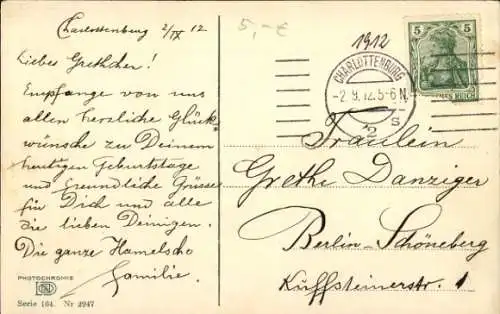 Charlottenburg 2/IX 12
Liebes Grethchen!
Empfange von uns
allen herzliche Glück-
wünsche zu Deinem
heutigen Geburtstage
und freundliche Grüsse
für Dich und alle
die lieben Deinigen.
Die ganze Hamelsche
Familie.
PHOTOCHROMIE
Serie 164. Nr 2947
5,-€
1912
CHARLOTTENBURG
-2.9.12.5-6N.
2
s
5
5
DEUTSCHES REICH
Fräulein
Grethe Danziger
Berlin-Schöneberg
Kuffsteinerstr. 1